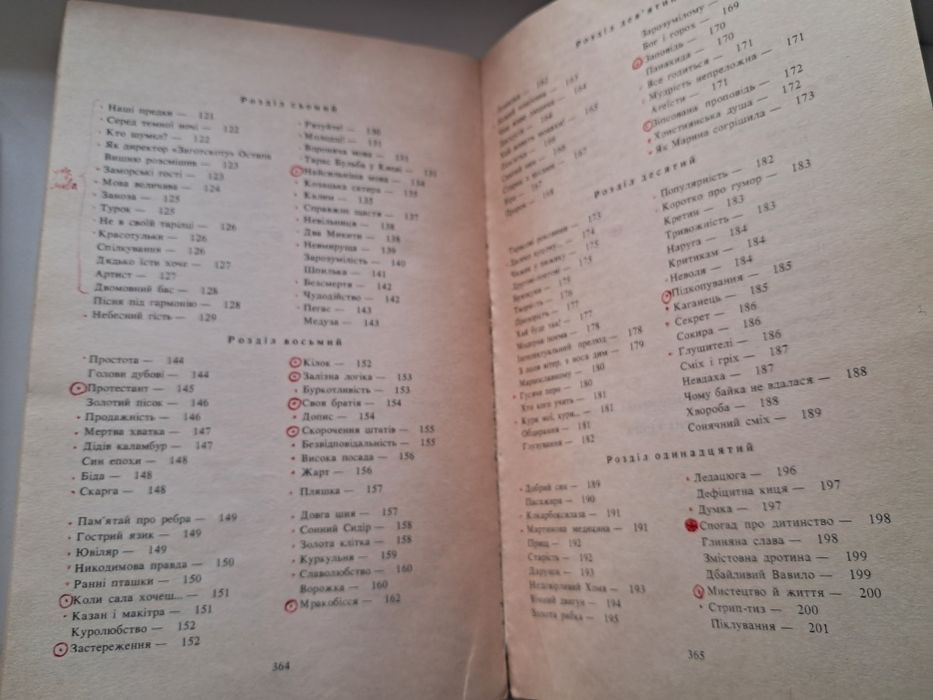 Розділ сьомий
Наші предки — 121
Серед темної ночі — 122
Кто шумел? — 122
Як директор «Заготскоту» Остапа
Вишню розсмішив — 123
Заморські гості — 123
Мова величава — 124
Заноза — 125
Турок — 125
Не в своїй тарілці — 126
Красотульки — 126
Спілкування — 126
Дядько їсти хоче — 127
Артист — 127
Двомовний бас — 128
Пісня під гармонію — 128
Небесний гість — 129
Рятуйте! — 130
Молодці! — 131
Воронячa мова — 131
Тарас Бульба у Києві — 131
Найсильніша мова — 134
Козацька сатира — 135
Калим — 135
Справжнє щастя — 137
Невільниця — 138
Два Микити — 138
Невмируща — 139
Зарозумілість — 140
Шпилька — 141
Безсмертя — 142
Чудодійство — 142
Пегас — 143
Медуза — 143
Розділ восьмий
Простота — 144
Голови дубові — 144
Протестант — 145
Золотий пісок — 146
Продажність — 146
Мертва хватка — 147
Дідів каламбур — 147
Син епохи — 148
Біда — 148
Скарга — 148
Пам'ятай про ребра — 149
Гострий язик — 149
Ювіляр — 149
Никодимова правда — 150
Ранні пташки — 150
Коли сала хочеш... — 151
Казан і макітра — 151
Куролюбство — 152
Застереження — 152
Кілок — 152
Залізна логіка — 153
Буркотливість — 153
Своя братія — 154
Допис — 154
Скорочення штатів — 155
Безвідповідальність — 155
Висока посада — 156
Жарт — 156
Пляшка — 157
Довга шия — 157
Сонний Сидір — 158
Золота клітка — 158
Куркульня — 159
Славолюбство — 160
Ворожка — 160
Мракобісся — 162
364
Розділ дев'ятий
Зарозумілому — 169
Бог і горох — 170
Заповідь — 170
Панахида — 171
Все годиться — 171
Мудрість непреложна — 171
Атеїсти — 171
Зіпсована проповідь — 172
Християнська душа — 172
Як Марина согрішила — 173
Розділ десятий
173
174
175
175
175
Творчість — 176
177
Хай буде так! — 177
178
Інтелектуальний прелюд — 178
З поля вітер, з воса дим — 179
180
Гусяче перо — 180
Хто кого учить — 181
Кури мої, кури... — 181
Обдирання — 181
Глузування — 182
Популярність — 182
Коротко про гумор — 183
Кретин — 183
Тривожність — 183
Наруга — 184
Критикам — 184
Неволя — 184
Підкопування — 185
Каганець — 185
Секрет — 186
Сокира — 186
Глушителі — 186
Сміх і гріх — 187
Невдаха — 187
Чому байка не вдалася — 188
Хвороба — 188
Сонячний сміх — 189
Розділ одинадцятий
Добрий син — 189
Пасажири — 190
Кокарбоксилаза — 191
Мартинова медицина — 191
Прищ — 192
Старість — 192
Дарунок — 193
Недовірливий Хома — 193
Вічний двигун — 194
Золота рибка — 195
Ледацюга — 196
Дефіцитна киця — 197
Думка — 197
Спогад про дитинство — 198
Глиняна слава — 198
Змістовна дротина — 199
Дбайливий Вавило — 199
Мистецтво й життя — 200
Стрип-тиз — 200
Піклування — 201
365